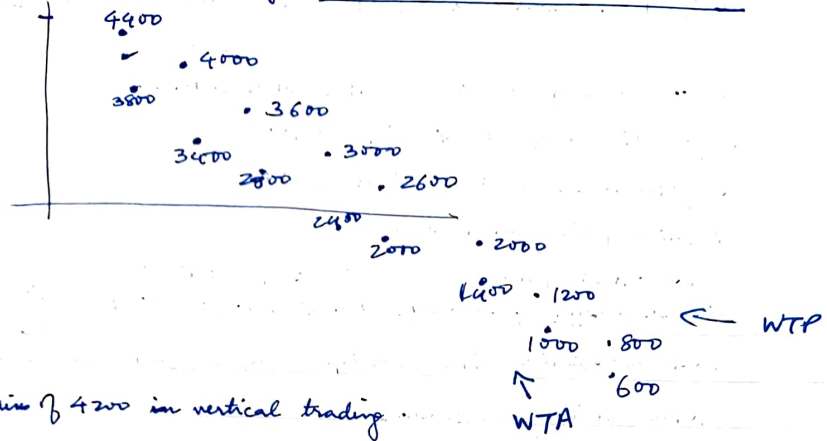 4400
4000
3800
3600
3400 3000
2800 2600
2400
2000 2000
1400 1200
WTP
1000 800
600
of 4200 in vertical trading.
WTA